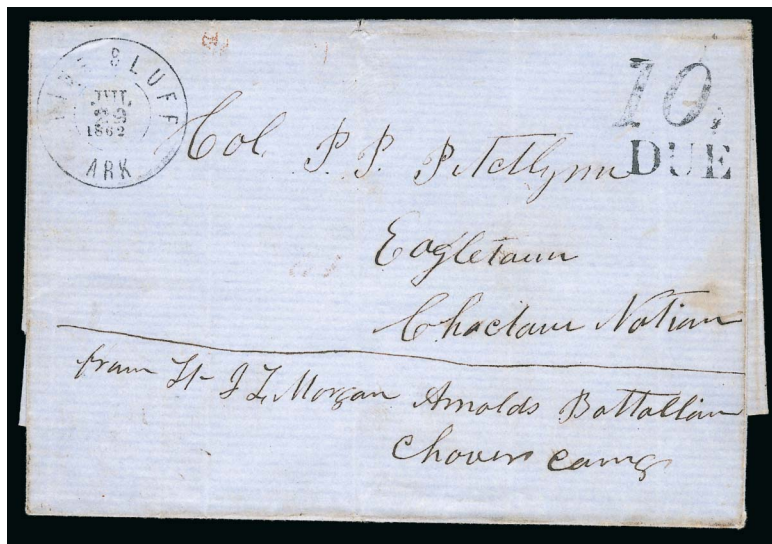 PINE BLUFF
JUL
29
1862
ARK
10,
DUE
Col. P. P. Pitchlynn
Eagletown
Choctaw Nation
from Lt J L Morgan Arnolds Battallion
camp